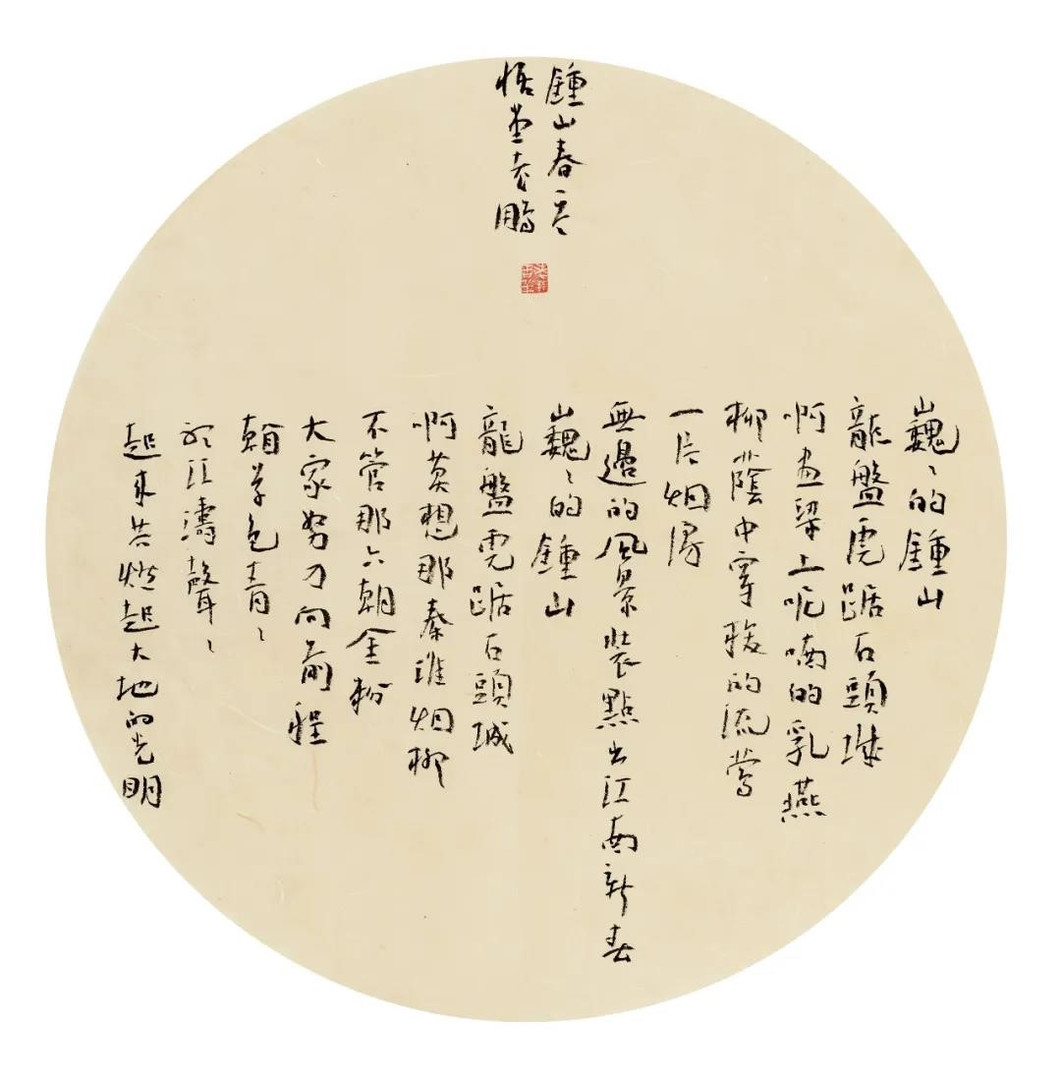 鍾山春
悟堂袁鵬
巍〻的鍾山
龍盤虎踞石頭城
啊畫梁上呢喃的乳燕
柳蔭中穿梭的流鶯
一片烟
無邊的風景裝點出江南新春
巍〻的鍾山
龍盤虎踞石頭城
啊莫想那秦淮烟柳
不管那六朝金粉
大家努力向前程
草色青〻
聽江濤聲〻
起來共燃起大地的光明